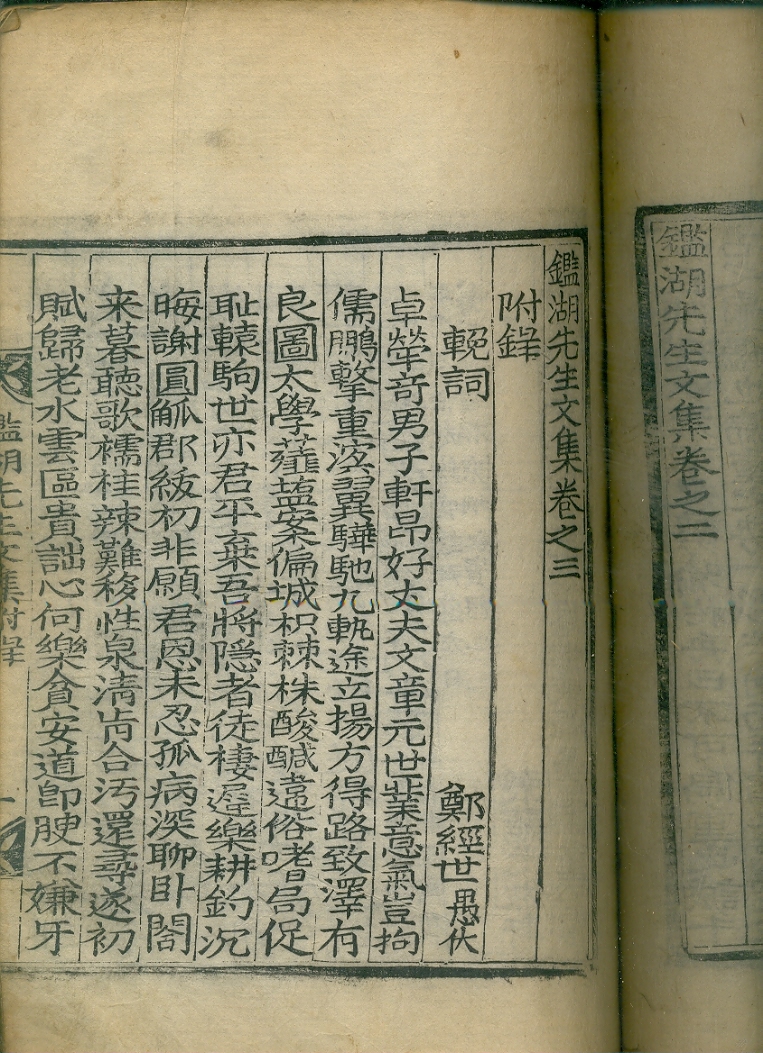 鑑湖先生文集卷之二
鑑湖先生文集卷之三
附錄
輓詞
鄭經世 愚伏
卓犖奇男子軒昂好丈夫文章元世業意氣豈拘
儒鵬擊重溟翼驊馳九軌途立揚方得路致澤有
良圖太學虀塩案偏城枳棘株酸醎違俗嗜局促
耻轅駒世亦君平棄吾將隱者徒棲遲樂耕釣沉
晦謝圓觚郡紱初非願君恩未忍孤病深聊卧閤
来暮聽歌襦桂辣難移性泉清肯合汚還尋遂初
賦歸老水雲區貴詘心何樂貧安道卽腴不嫌牙
鑑湖先生文集附錄 一